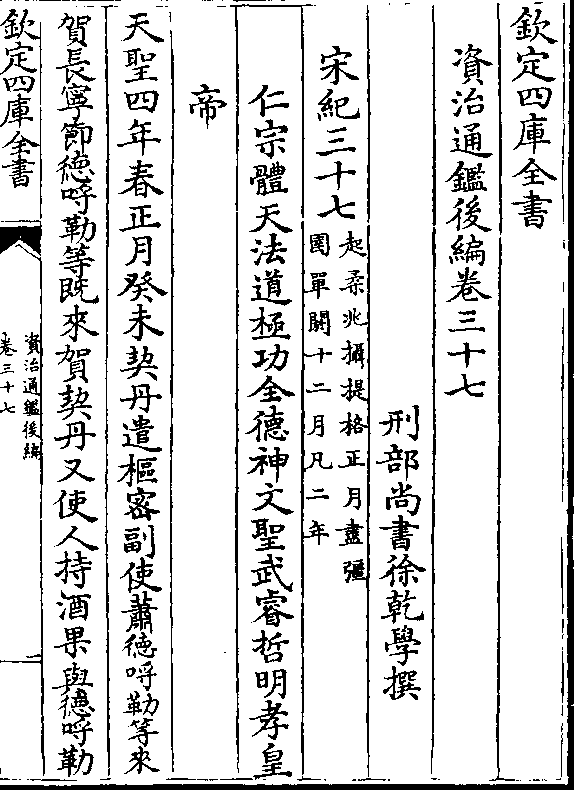 欽定四庫全書
資治通鑑後編卷三十七
刑部尚書徐乾學撰
宋紀三十七
起柔兆攝提格正月盡彊
圉單閼十二月凡二年
仁宗體天法道極功全德神文聖武睿哲明孝皇
帝
天聖四年春正月癸未契丹遣樞密副使蕭德呼勒等來
賀長寧節德呼勒等既來賀契丹又使人持酒果與德呼勒
欽定四庫全書
資治通鑑後編
卷三十七
一